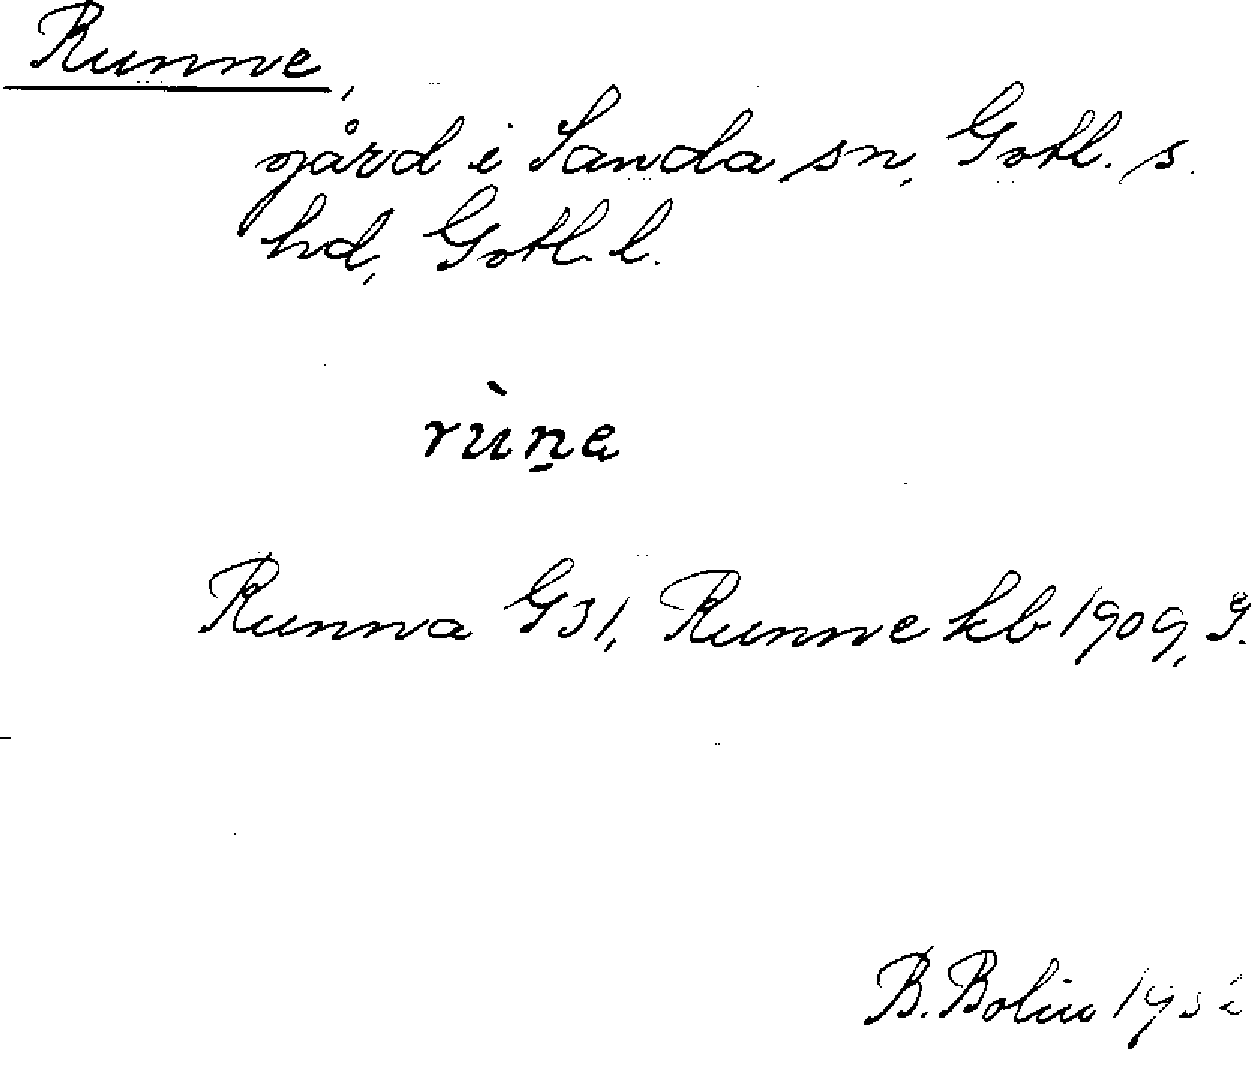 Runne,
gård i Sanda sn, Gotl. s.
hd, Gotl. l.
rùn̲a
Runna G31, Runne kb 1909, J.
B. Bolin 1932